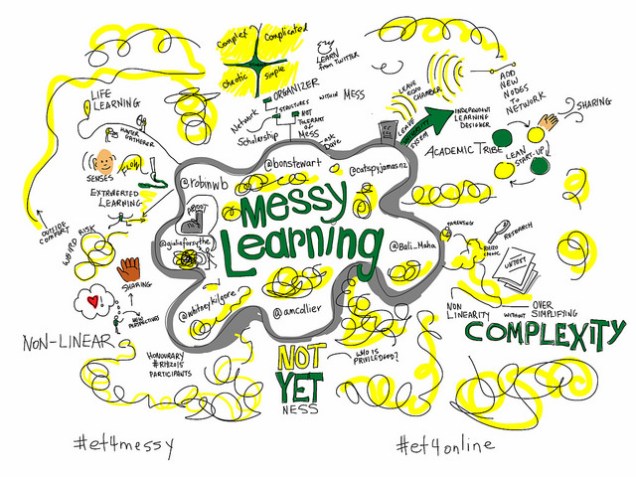 Complex
Complicated
Chaotic
Simple
LEARN
from TWITTER
ORGANIZER
STRUCTURES WITHIN MESS
Network
Scholarship
NOT
THERAPY
OF
MESS
ask
Dave
LEAVE
ECHO
CHAMBER
LEAVE
ADD
NEW
NODES
To
NETWORK
SHARING
INDEPENDENT
LEARNING
DESIGNER
ACADEMIC TRIBE
LEAN
START-UP
LIFE
LEARNING
HUNTER
GATHERER
SENSES
FLOW
EXTROVERTED
LEARNING
OUTSIDE
COMFORT
WEIRD RISK
SHARING
NEW
PERSPECTIVES
NON-LINEAR
@robinwb
@bonstewart
@catspyjamasnz
Messy
Learning
@giulieforsythe
@Bali_Maha
@whitneykilgore
@amcollier
RESEARCH
UNTEXT
NON
LINEARITY
WITHOUT
OVER
SIMPLIFYING
COMPLEXITY
HONOURARY
#RHIZO15
PARTICIPANTS
NOT
YET
NESS
WHO IS
PRIVILEGED?
#et4messy
#et4online